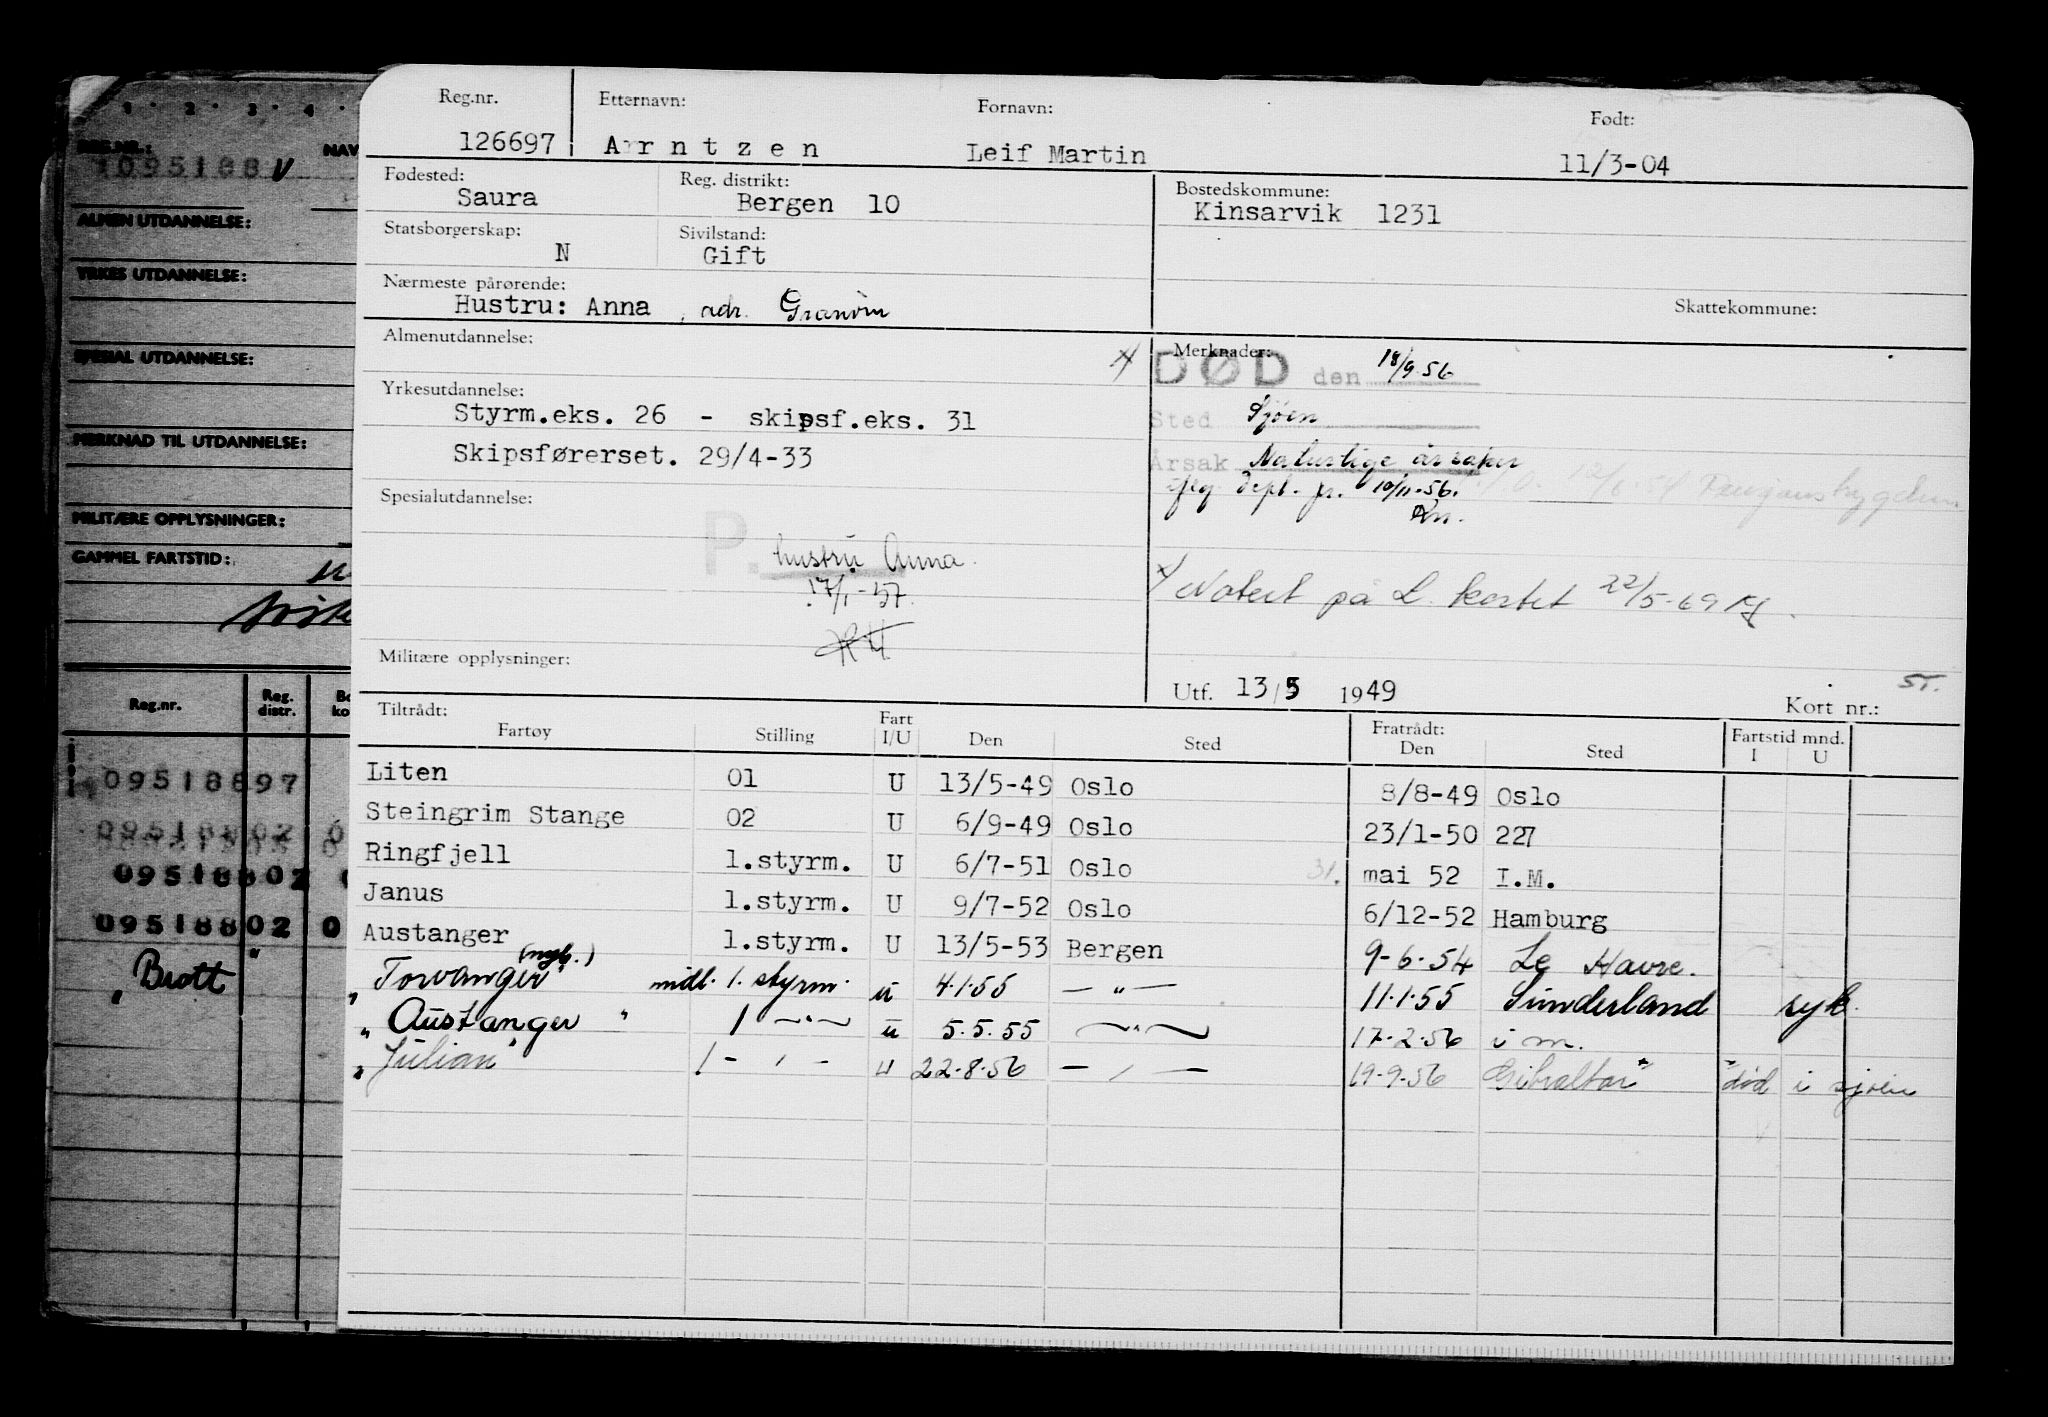 1 · 2 · 3 · 4 ·
REG.NR.: NAV
1095188 V
ALMEN UTDANNELSE:
YRKES UTDANNELSE:
SPESIAL UTDANNELSE:
MERKNAD TIL UTDANNELSE:
MILITÆRE OPPLYSNINGER:
GAMMEL FARTSTID:
Reg.nr. Reg. distr. Bo ko
09518897
09518802 0
09518802 0
09518802 0
" Brott "
Reg.nr. Etternavn: Fornavn: Født:
126697 Arntzen Leif Martin 11/3-04
Fødested: Reg. distrikt: Bostedskommune:
Saura Bergen 10 Kinsarvik 1231
Statsborgerskap: Sivilstand:
N Gift
Nærmeste pårørende: Skattekommune:
Hustru: Anna , adr. Granvin
Almenutdannelse: x) Merknader:
DØD den 18/9.56
Yrkesutdannelse:
Styrm.eks. 26 - skipsf.eks. 31
Sted Sjøen
Skipsførerset. 29/4-33
Årsak Naturlige årsaker
Spesialutdannelse:
iflg. Dept. pr. 10/11-56.
P. hustru Anna
17/1-57.
x) Notert på L. kortet 22/5-69
Militære opplysninger:
Utf. 13/5 1949 Kort nr.:
Tiltrådt: Fratrådt: Fartstid mnd.
Fartøy Stilling Fart I/U Den Sted Den Sted I U
Liten 01 U 13/5-49 Oslo 8/8-49 Oslo
Steingrim Stange 02 U 6/9-49 Oslo 23/1-50 227
Ringfjell 1.styrm. U 6/7-51 Oslo 31. mai 52 I.M.
Janus 1.styrm. U 9/7-52 Oslo 6/12-52 Hamburg
Austanger 1.styrm. U 13/5-53 Bergen 9-6-54 Le Havre.
(nyb.)
"Torvanger" midl. 1. styrm. u 4.1.55 — " — 11.1.55 Sunderland syk.
"Austanger" 1 —"— u 5.5.55 —"— 17.2.56 i m.
"Julian" 1 - " - u 22.8.56 — " — 19.9.56 Gibraltar" "død i sjøen